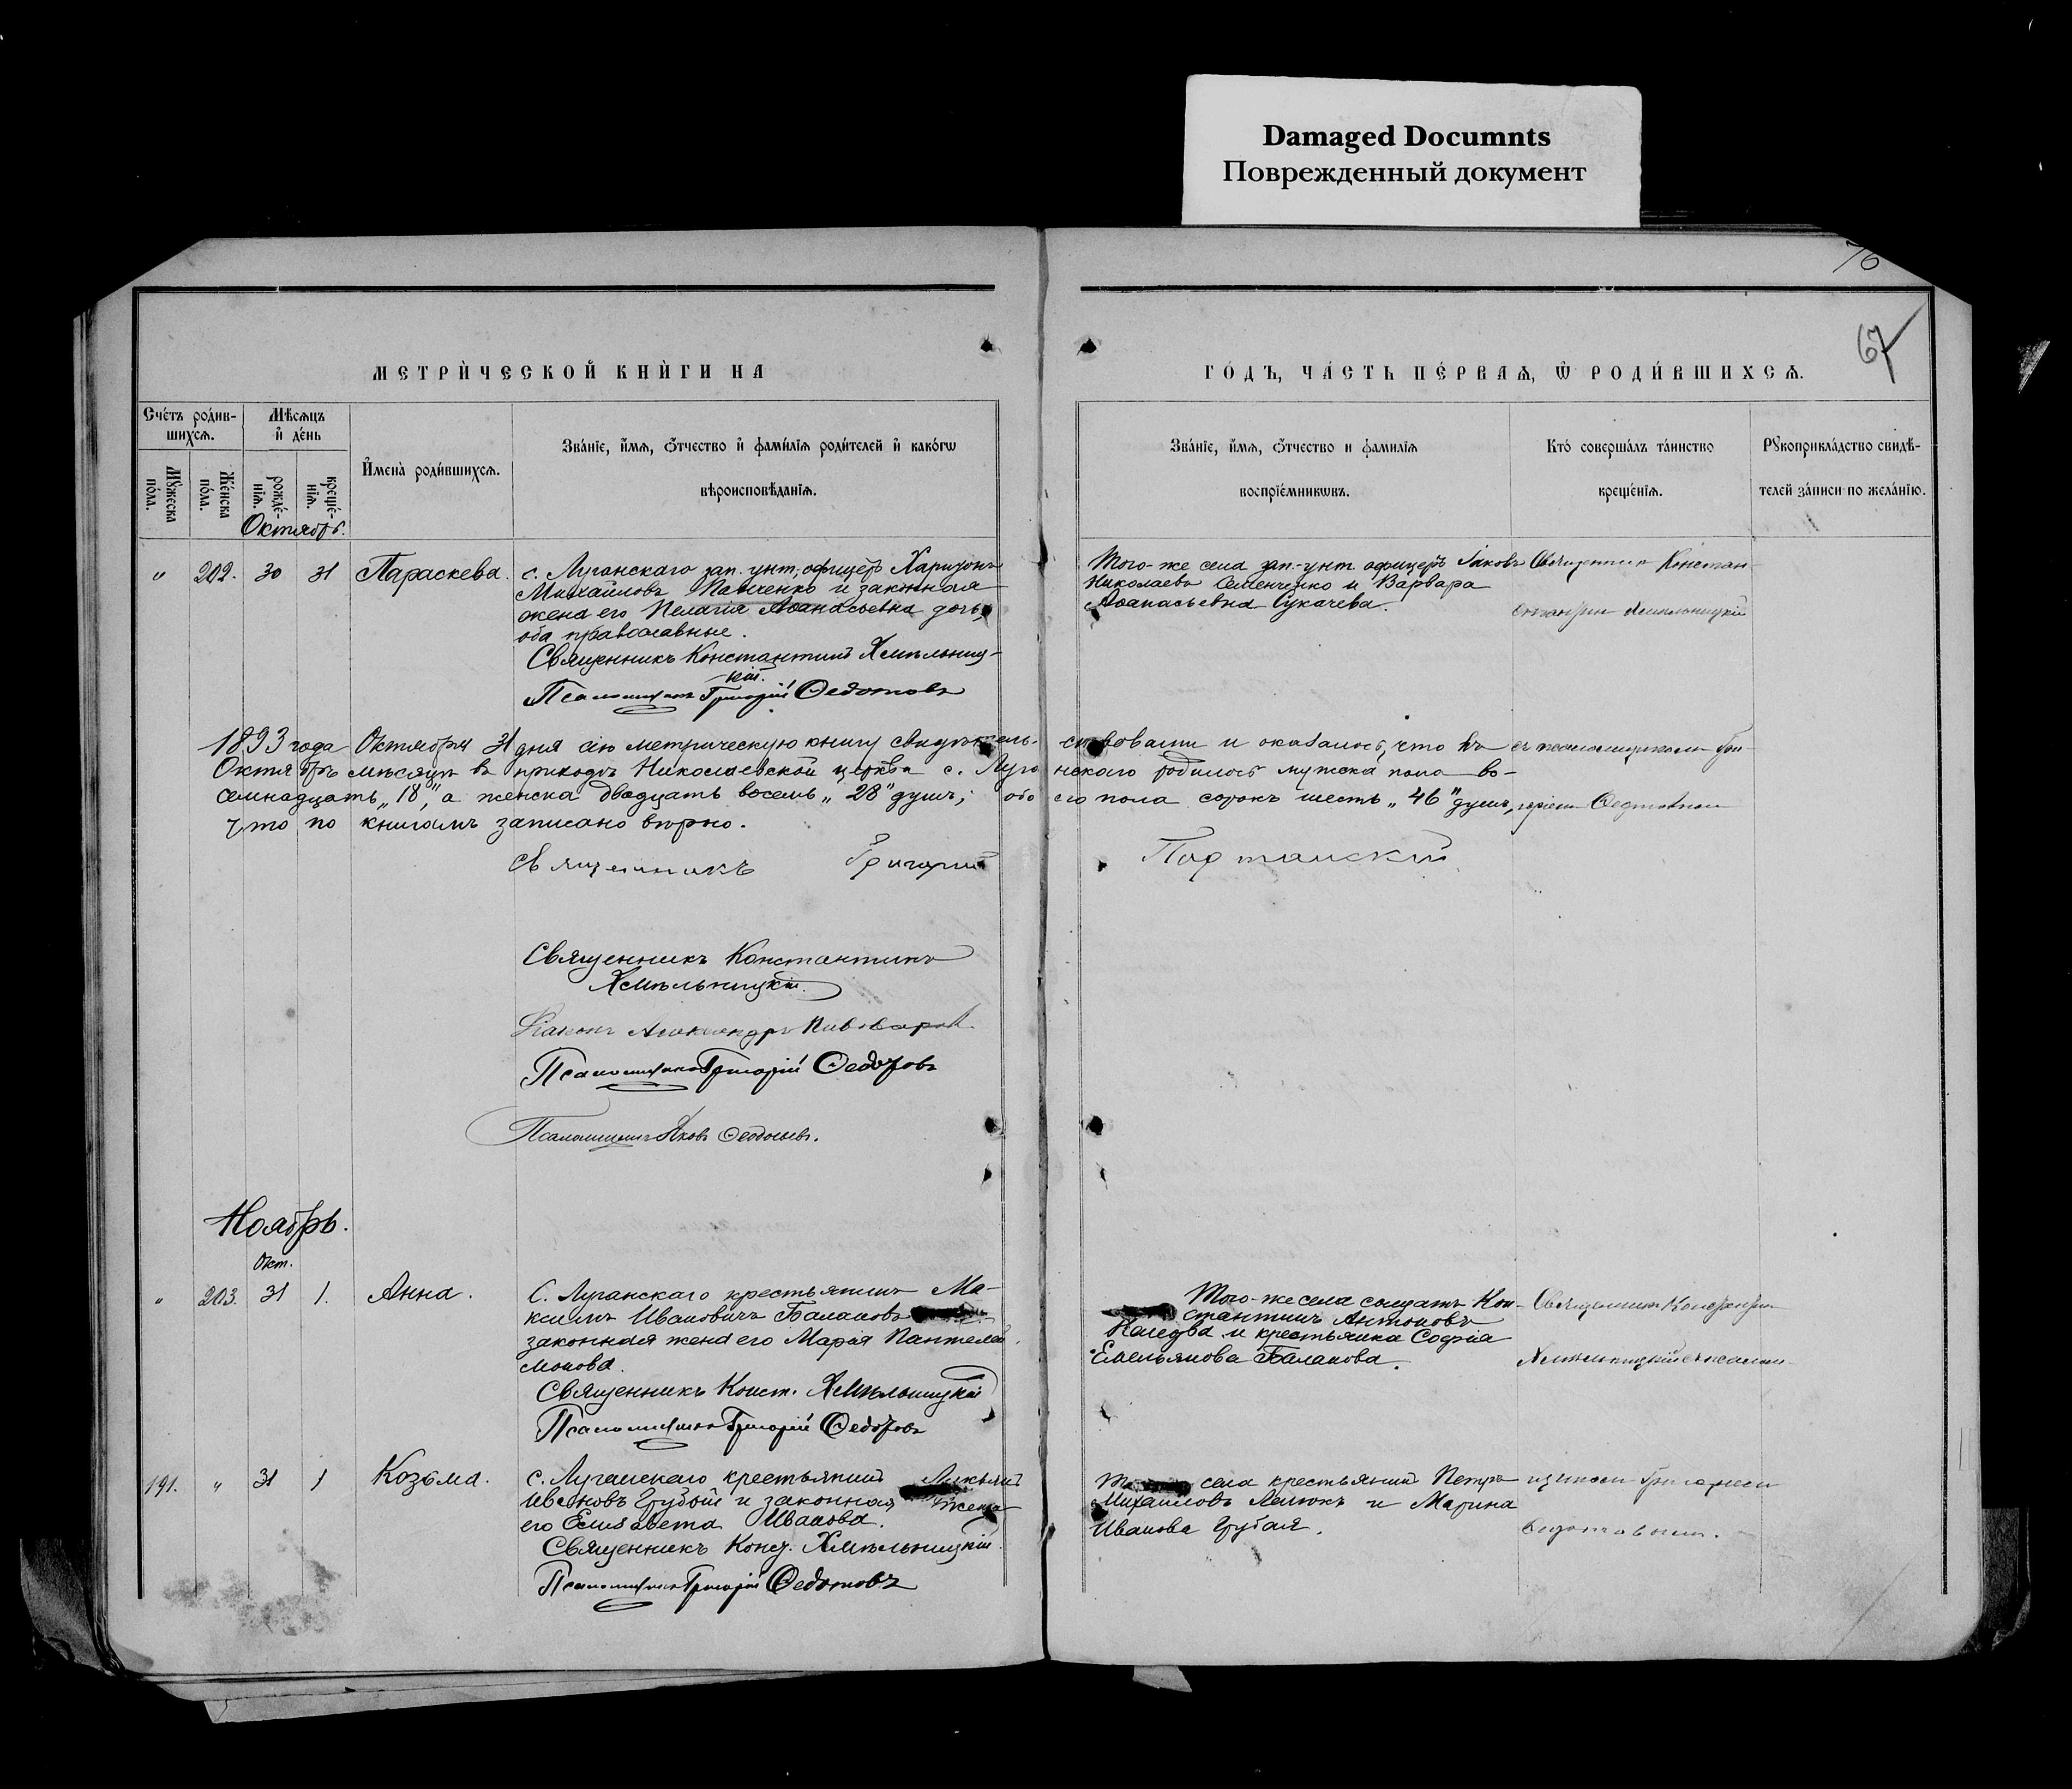 Damaged Documnts
Поврежденный документ
67
МЕТРИ́ЧЕСКОЙ КНИ́ГИ НА
ГО́ДЪ, ЧА́СТЬ ПЕ́РВАѦ, Ѡ҆ РОДИ́ВШИХСѦ.
Сче́тъ роди́в-
шихсѧ.
Мѣ́сѧцъ
и҆ де́нь
Мꙋ́жеска
по́ла.
Же́нска
по́ла.
рожде́-
нїѧ.
креще́-
нїѧ.
И҆мена̀ роди́вшихсѧ.
Зва́нїе, и҆́мѧ, ѻ҆́тчество и҆ фами́лїѧ роди́телей и҆ како́гѡ
вѣроисповѣ́данїѧ.
Зва́нїе, и҆́мѧ, ѻ҆́тчество и фами́лїѧ
воспрїе́мникѡвъ.
Кто̀ соверша́лъ та́инство
креще́нїѧ.
Рꙋкоприкла́дство свидѣ́-
телей за́писи по жела́нїю.
Октябрь.
" 202. 30 31 Параскева.
с. Луганскаго зап. унт. офицеръ Харитонъ
Михайловъ Павленко и законная
жена его Пелагія Аѳанасьевна дочь,
оба православные.
Священникъ Константинъ Хмѣльниц-
кій.
Псаломщикъ Григорій Ѳедотовъ
Того-же села зап.-унт. офицеръ Іаковъ
Николаевъ Семенченко и Варвара
Аѳанасьевна Сукачева.
Священникъ Констан-
Хмѣльницкій
1893 года Октября 31 дня сію метрическую книгу свидѣтель-
ствовали и оказалось, что въ
съ псаломщикомъ Гри-
Октябрѣ мѣсяцѣ въ приходѣ Николаевской церкви с. Луга
нскаго родилось мужска пола во-
семнадцать „18", а женска двадцать восемь „28" душъ; обо
его пола сорокъ шесть „46" душъ,
горіемъ Ѳедотовымъ
что по книгамъ записано вѣрно.
Священникъ Григорій
Священникъ Константинъ
Хмѣльницкій.
Діаконъ Александръ Пивоваровъ.
Псаломщикъ Григорій Ѳедотовъ
Псаломщикъ Яковъ Ѳеодосьевъ.
Ноябрь.
Окт.
" 203. 31 1. Анна.
С. Луганскаго крестьянинъ Ма-
ксимъ Ивановичъ Балановъ
законная жена его Марія Пантелей-
монова.
Священникъ Конст. Хмѣльницкій
Псаломщикъ Григорій Ѳедотовъ
Того-же села солдатъ Кон-
стантинъ Антоновъ
и крестьянка Софія
Емельянова Баланова.
Священникъ Константинъ
Хмѣльницкій съ псалом-
191. " 31 1 Козьма.
с. Луганскаго крестьянинъ
Ивановъ Грубой и законная жена
его Елисавета Иванова.
Священникъ Конст. Хмѣльницкій.
Псаломщикъ Григорій Ѳедотовъ
села крестьянинъ Петръ
Михайловъ и Марина
Иванова Грубая.
щикомъ Григоріемъ
Ѳедотовымъ.